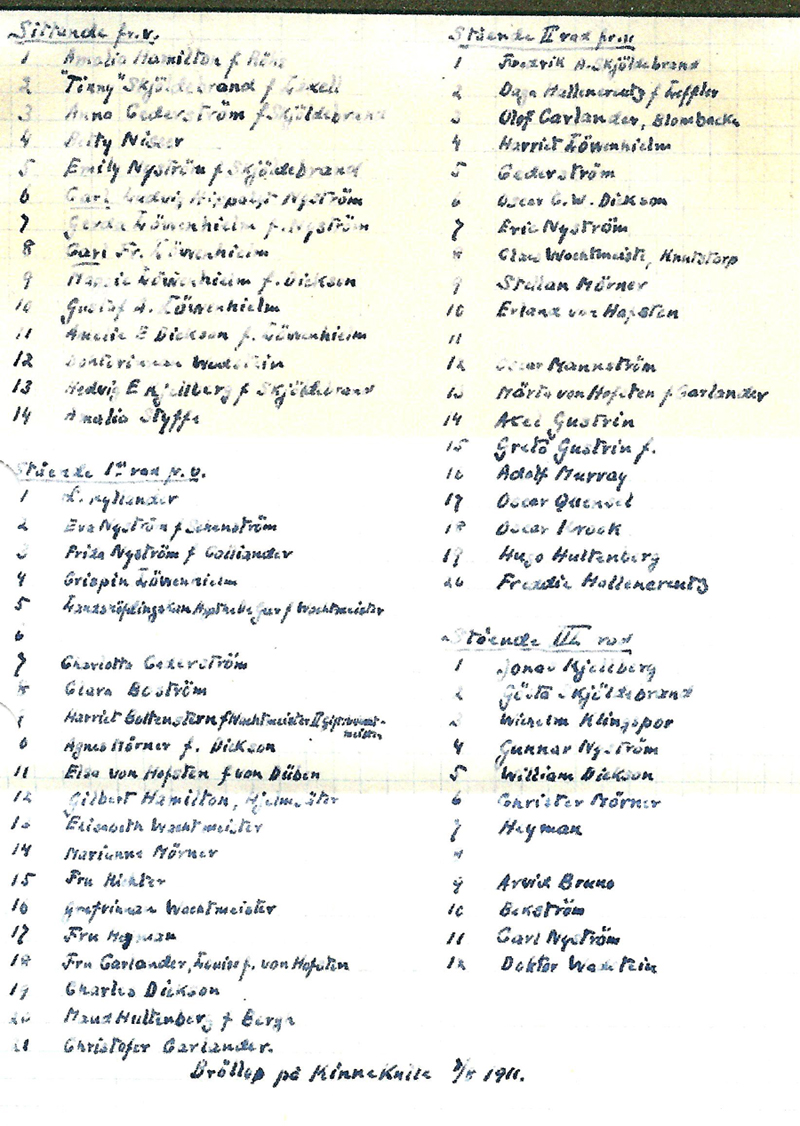 Sittande fr.v.
1 Amalia Hamilton f
2 "Tinny" Skjöldebrand f
3 Anna Cederström f Skjöldebrand
4 Betty
5 Emily Nyström f Skjöldebrand
6 Carl Ludvig Nyström
7 Gerda Löwenhielm f. Nyström
8 Carl Fr. Löwenhielm
9 Löwenhielm f. Dickson
10 Gustaf A. Löwenhielm
11 Amelie E Dickson f. Löwenhielm
12 Doktorinnan Wadstein
13 Hedvig E Kjellberg f Skjöldebrand
14 Amalia Styffe
Stående 1:a rad fr. v.
1 Kylander
2 Eva Nyström f
3 Frida Nyström f Colliander
4 Crispin Löwenhielm
5 f Wachtmeister
6
7 Charlotte Cederström
8 Clara Boström
9 Harriet Bottenstern f Wachtmeister
Agnes Mörner f. Dickson
11 Elsa von Hofsten f von Düben
12 Gilbert Hamilton, Hjelmsäter
13 Elisabeth Wachtmeister
14 Marianne Mörner
15 Fru Richter
16 Grefvinnan Wachtmeister
17 Fru Heyman
18 Fru Carlander, Louise f. von Hofsten
19 Charles Dickson
20 Maud Hultenberg f
21 Christofer Carlander.
Stående II rad fr. v
1 Fredrik A. Skjöldebrand
2 Daga Hallencreutz f Leffler
3 Olof Carlander, Blombacka
4 Harriet Löwenhielm
5 Cederström
6 Oscar C. W. Dickson
7 Eric Nyström
8 Claes Wachtmeister, Knutstorp
9 Stellan Mörner
10 Erland von Hofsten
11
12 Oscar Mannström
13 Märta von Hofsten f Carlander
14 Axel Gustrin
15 Greta Gustrin f.
16 Adolf Murray
17 Oscar Quensel
18 Oscar Krook
19 Hugo Hultenberg
20 Freddie Hallencreutz
Stående III rad
1 Jonas Kjellberg
2 Gösta Skjöldebrand
3 Wilhelm Klingspor
4 Gunnar Nyström
5 William Dickson
6 Christer Mörner
7 Heyman
8
9 Arvid Bruno
10 Beckström
11 Carl Nyström
12 Doktor Wadstein
Bröllop på Kinnekulle 1911.